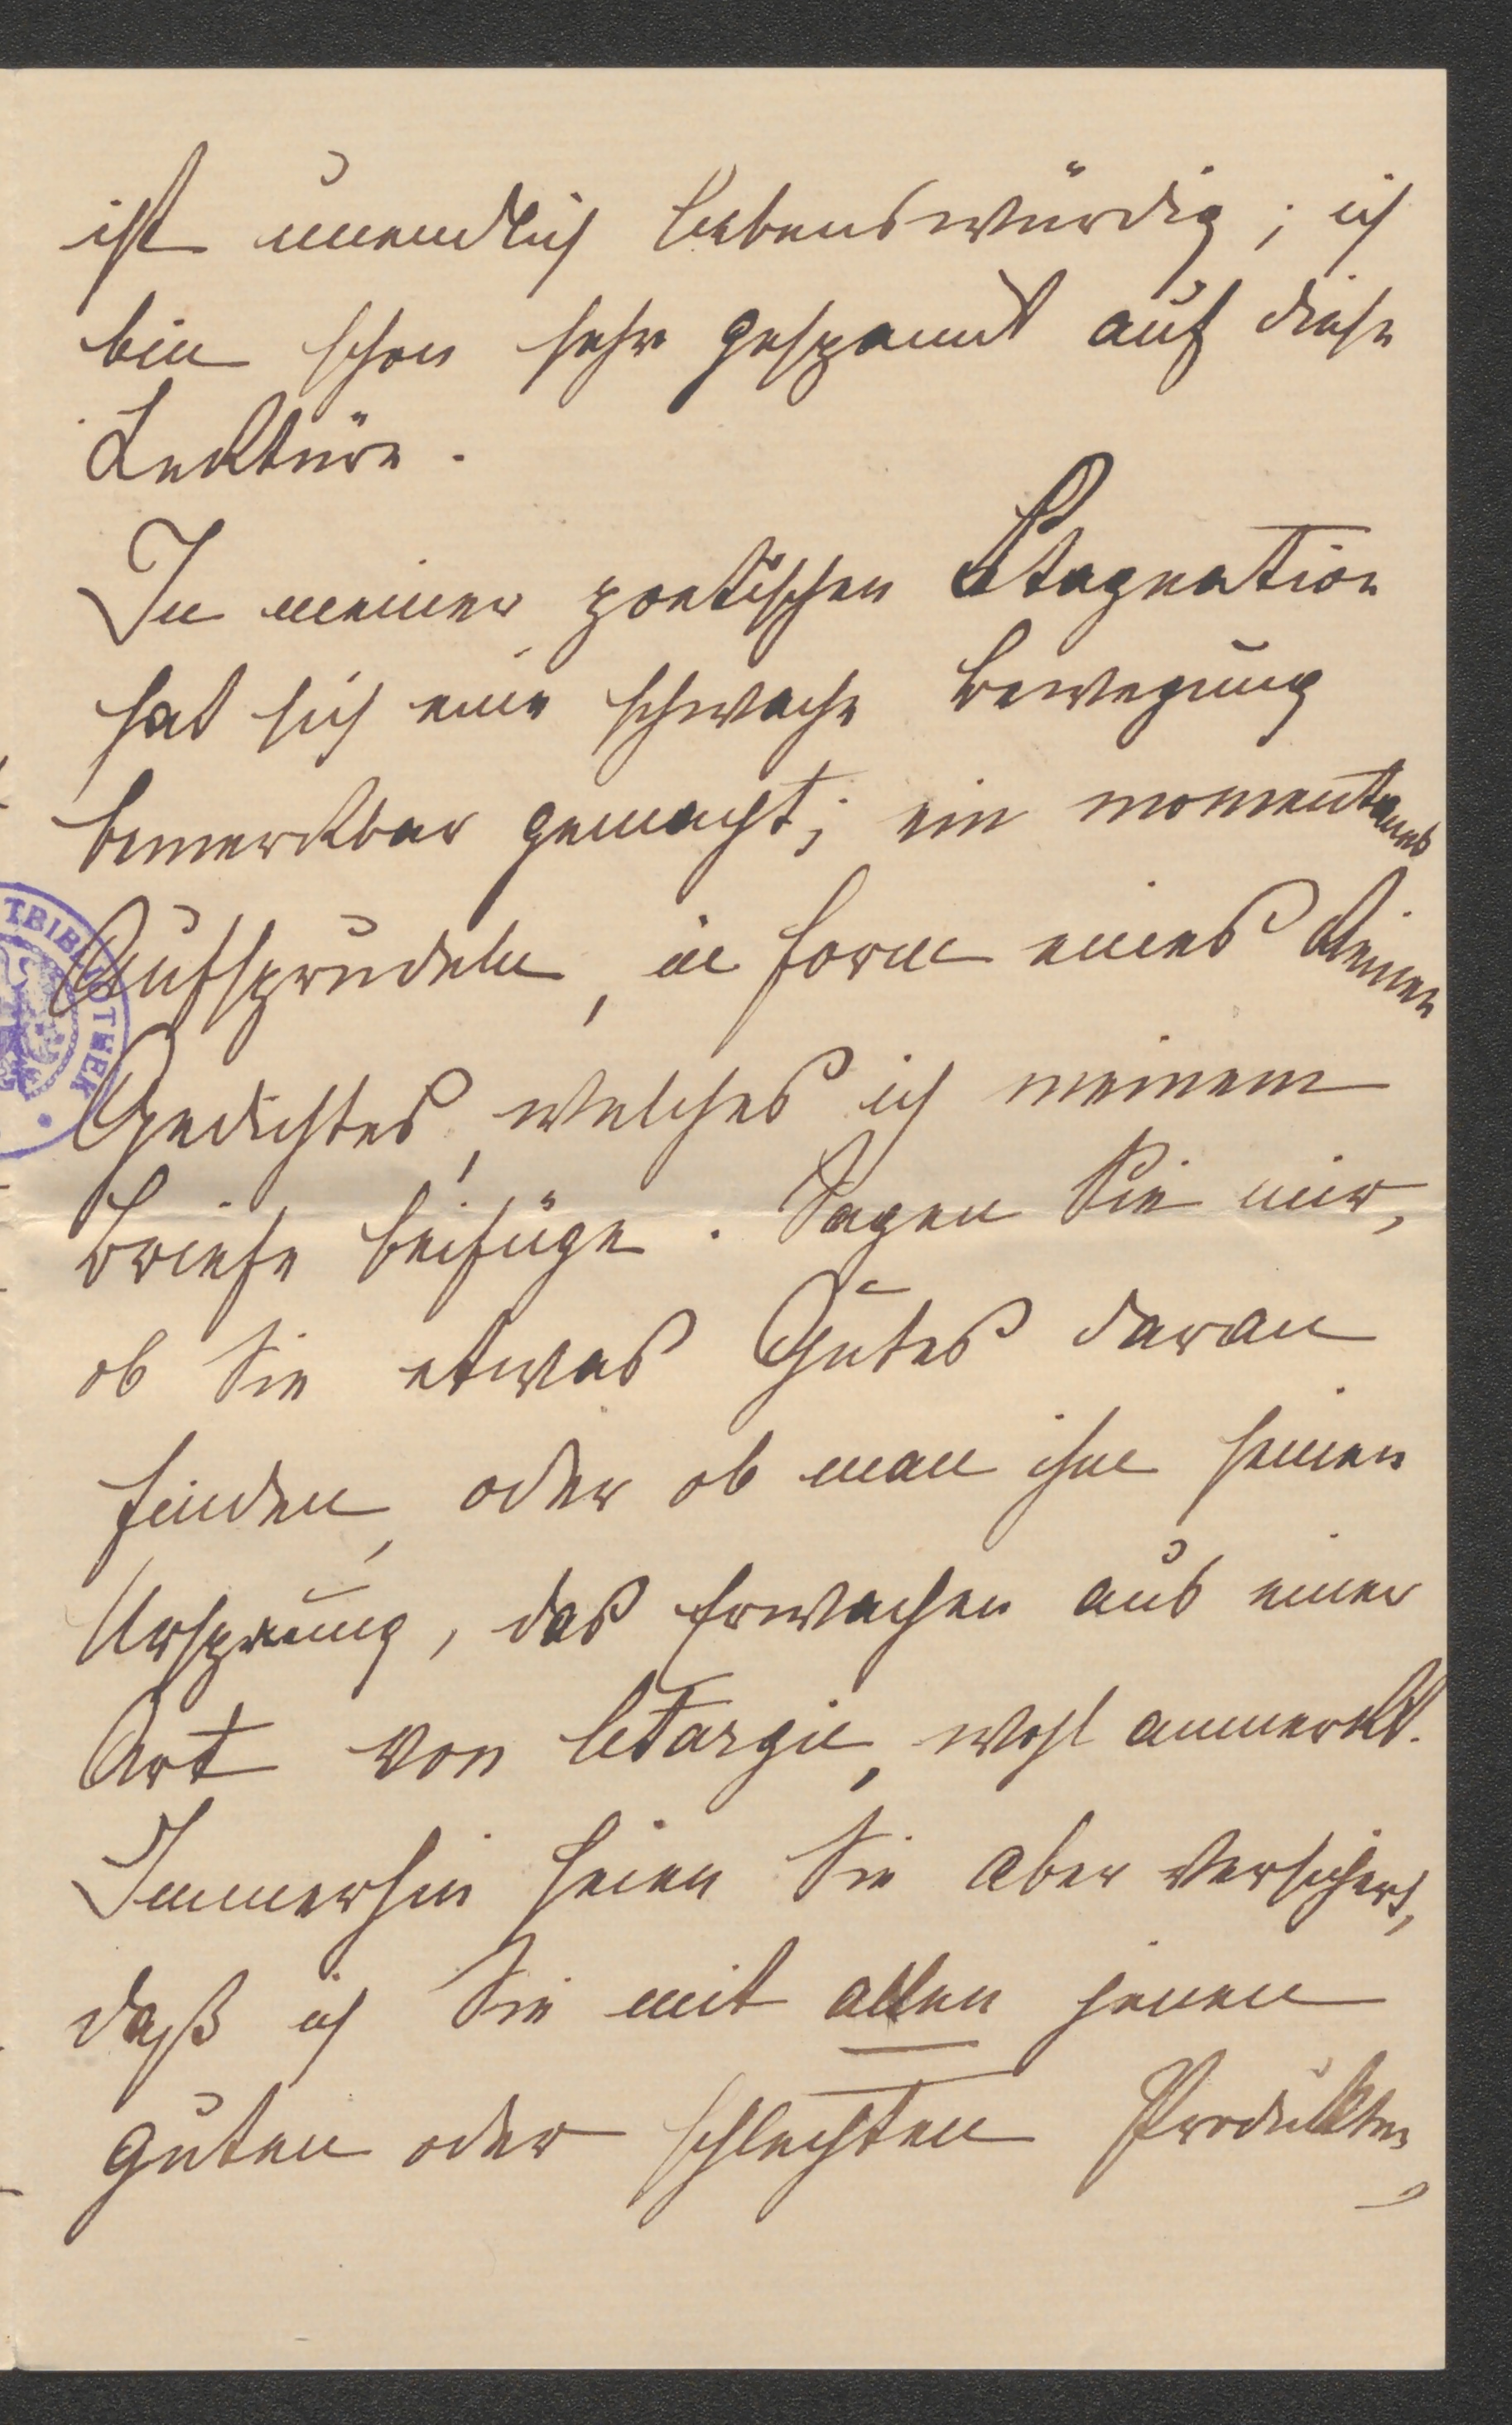 ist unendlich liebenswürdig; ich
bin schon sehr gespannt auf diese
Lektüre.
In meiner poetischen Stagnation
hat sich eine schwache Bewegung
bemerkbar gemacht; ein momentanes
Aufsprudeln, in Form eines kleinen
Gedichtes, welches ich meinem
Briefe beifüge. Sagen Sie mir,
ob Sie etwas Gutes daran
finden, oder ob man ihm seinen
Ursprung, das Erwachen aus einer
Art von Letargie, wohl anmerkt.
Immerhin seien Sie aber versichert,
daß ich Sie mit allen jenen
guten oder schlechten Produkten,
TBIBLIOTHEK